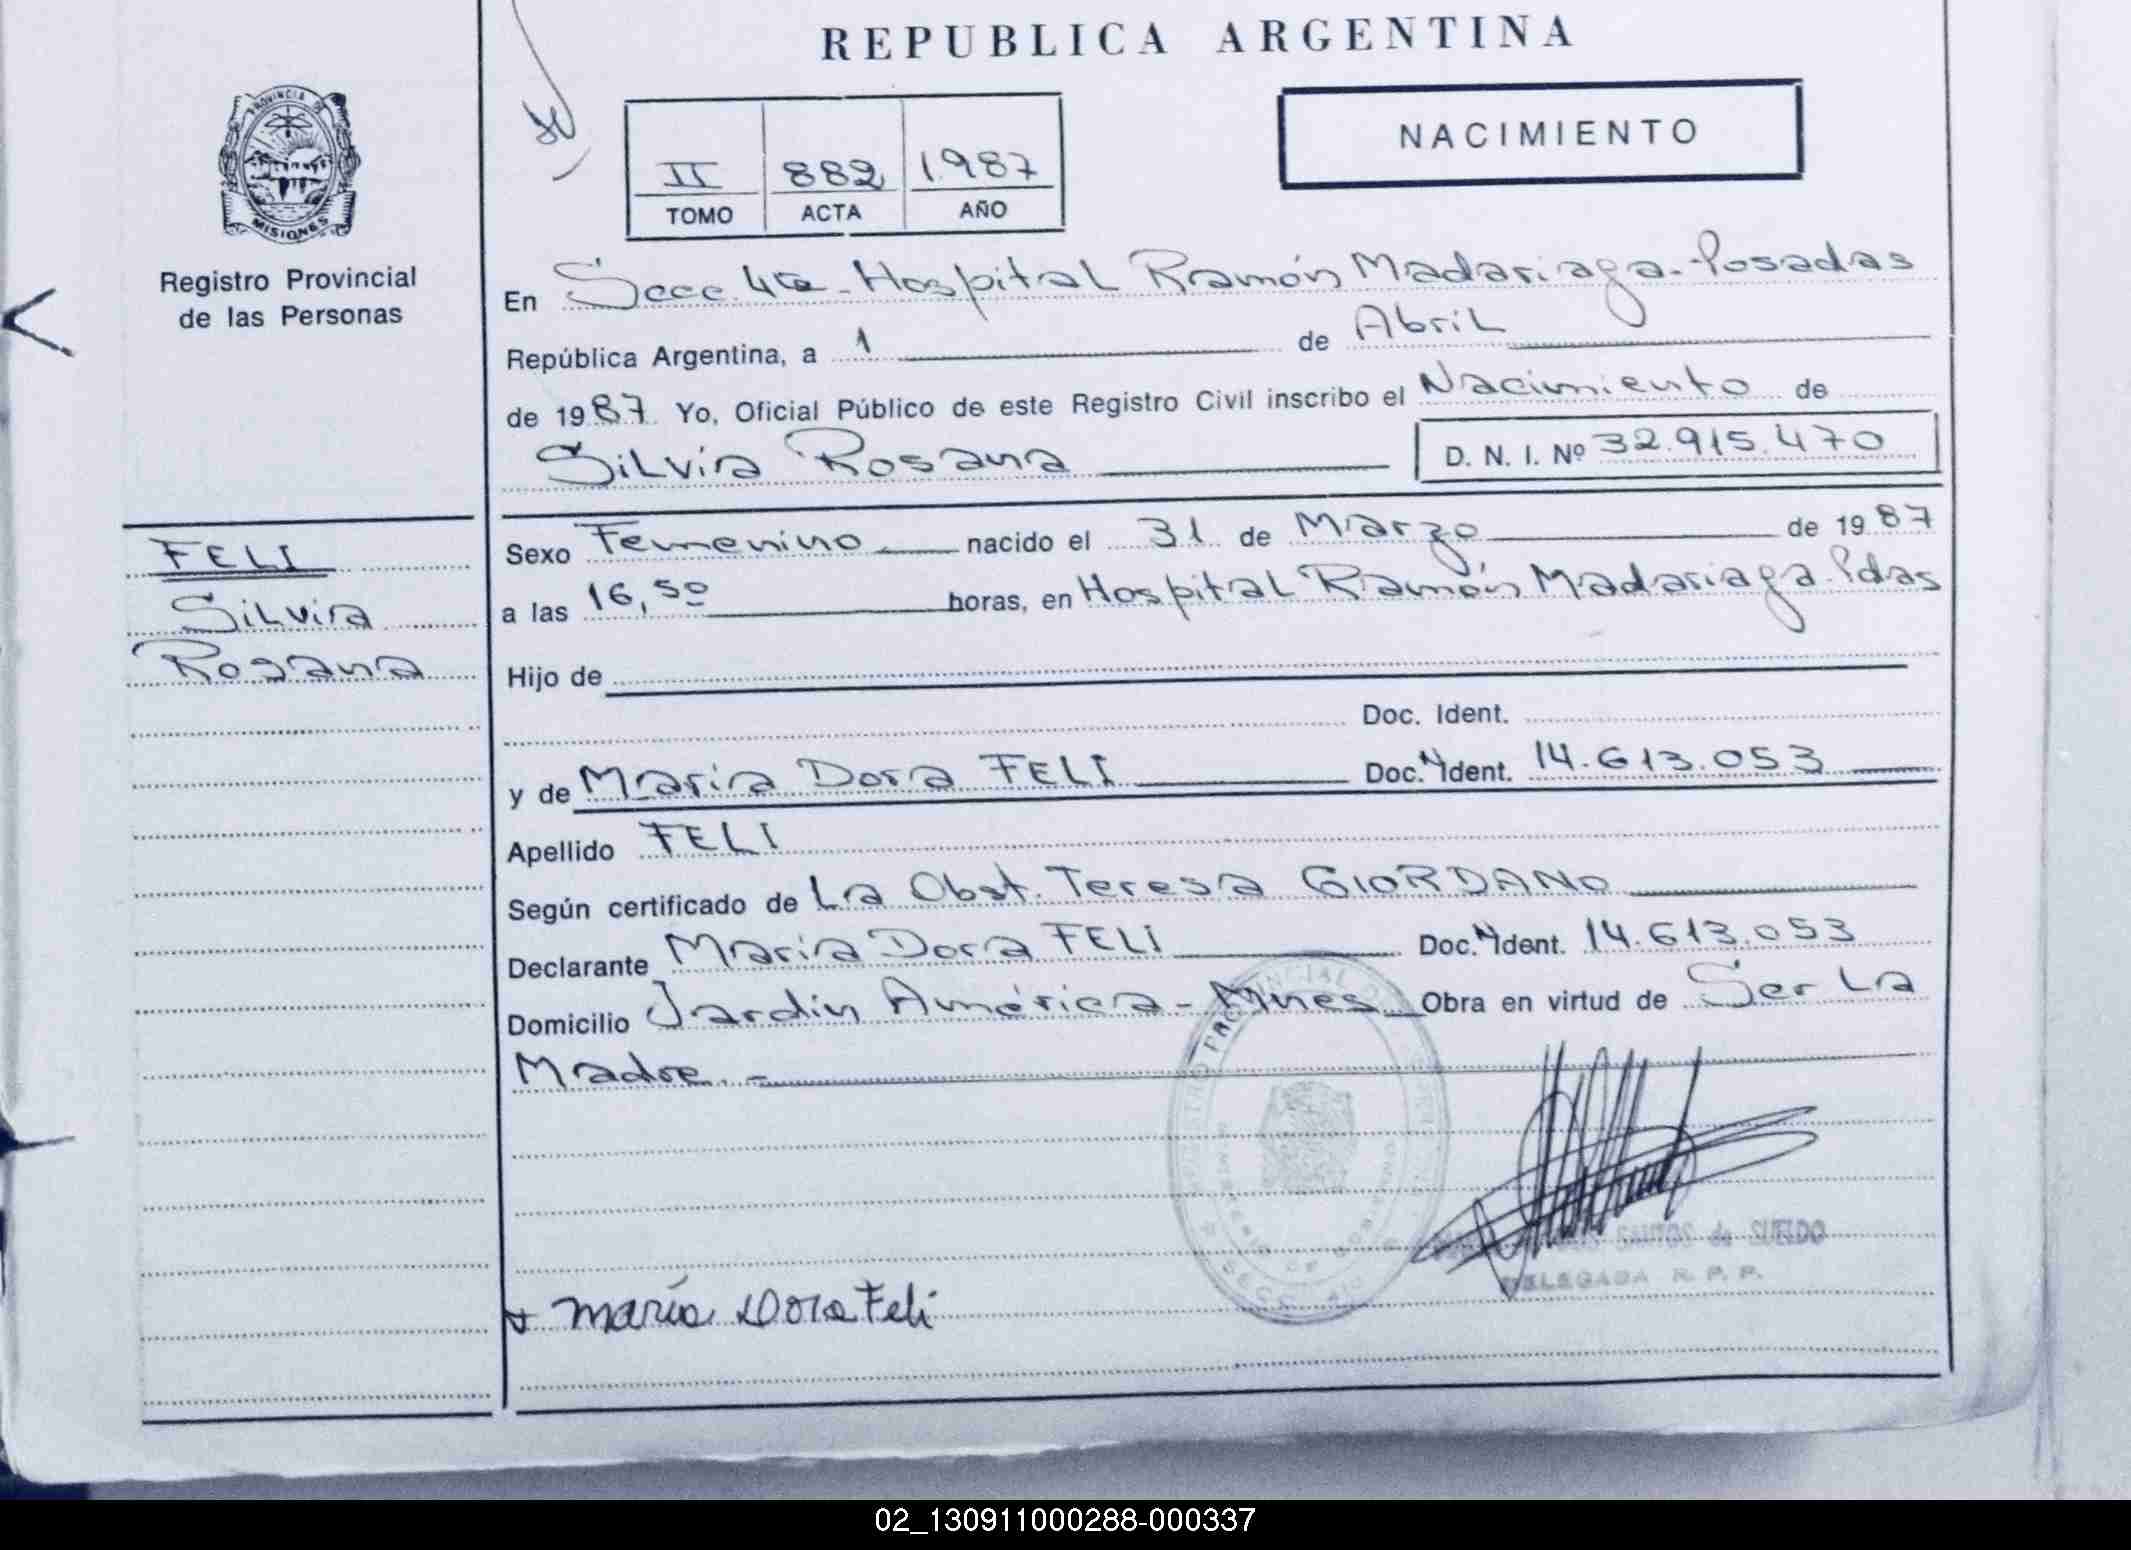 REPUBLICA ARGENTINA
PROVINCIA DE
MISIONES
Registro Provincial
de las Personas
II 882 1987
TOMO ACTA AÑO
NACIMIENTO
En Secc. 4ta - Hospital Ramón Madariaga - Posadas
República Argentina, a 1 de Abril
de 1987 Yo, Oficial Público de este Registro Civil inscribo el Nacimiento de
Silvia Rosana D. N. I. Nº 32.915.470
FELI
Silvia
Rosana
Sexo Femenino nacido el 31 de Marzo de 1987
a las 16,50 horas, en Hospital Ramón Madariaga. Pdas
Hijo de
Doc. Ident.
y de Maria Dora FELI Doc. N Ident. 14.613.053
Apellido FELI
Según certificado de La Obst. Teresa GIORDANO
Declarante Maria Dora FELI Doc. N Ident. 14.613.053
Domicilio Jardín América - Mnes Obra en virtud de Ser La
Madre. -
SANTOS de SUELDO
DELEGADA R. P. P.
maría Dora Feli
02_130911000288-000337